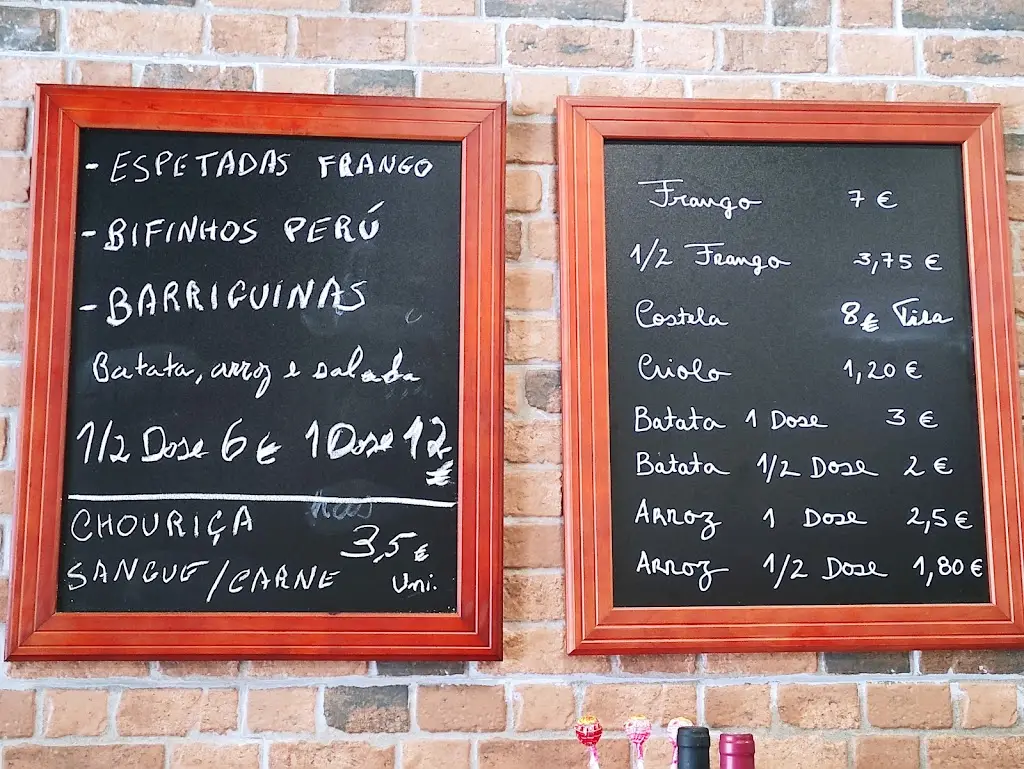 - ESPETADAS FRANGO
- BIFINHOS PERÚ
- BARRIGUINAS
Batata, arroz e salada
1/2 Dose 6 € 1 Dose 12 €
CHOURIÇA
SANGUE/CARNE 3,5 € Uni.
Frango 7 €
1/2 Frango 3,75 €
Costela 8 € Tira
Criolo 1,20 €
Batata 1 Dose 3 €
Batata 1/2 Dose 2 €
Arroz 1 Dose 2,5 €
Arroz 1/2 Dose 1,80 €